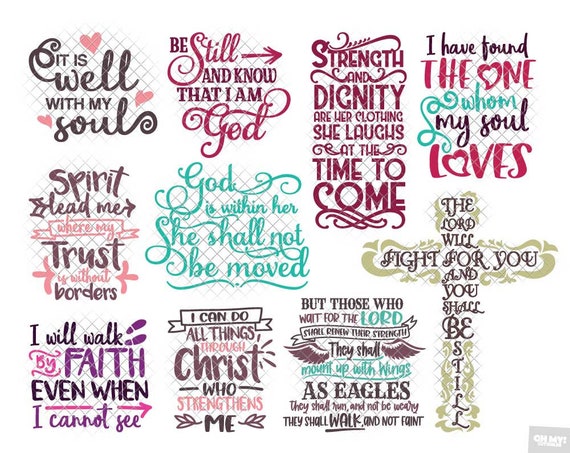 IT IS
well
WITH MY
soul
BE Still
AND KNOW
THAT I AM
God
STRENGTH
AND
DIGNITY
ARE HER CLOTHING
SHE LAUGHS
AT THE
TIME TO
COME
I have found
THE ONE
whom
my soul
LOVES
Spirit
lead me
where my
Trust
is without
borders
God
is within her
She shall not
be moved
THE
LORD
WILL
FIGHT FOR YOU
AND
YOU
SHALL
BE
STILL
I will walk
by FAITH
EVEN WHEN
I cannot see
I CAN DO
ALL THINGS
THROUGH
Christ
WHO
STRENGTHENS
ME
BUT THOSE WHO
WAIT FOR THE LORD
SHALL RENEW THEIR STRENGTH
They shall
mount up with wings
AS EAGLES
They shall run, and not be weary
THEY SHALL WALK, AND NOT FAINT
OH MY!